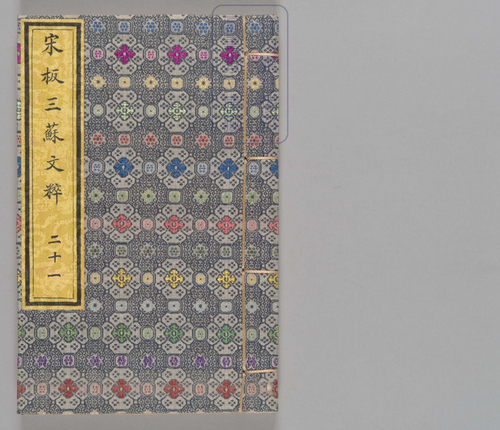 宋板三蘇文粹 二十一